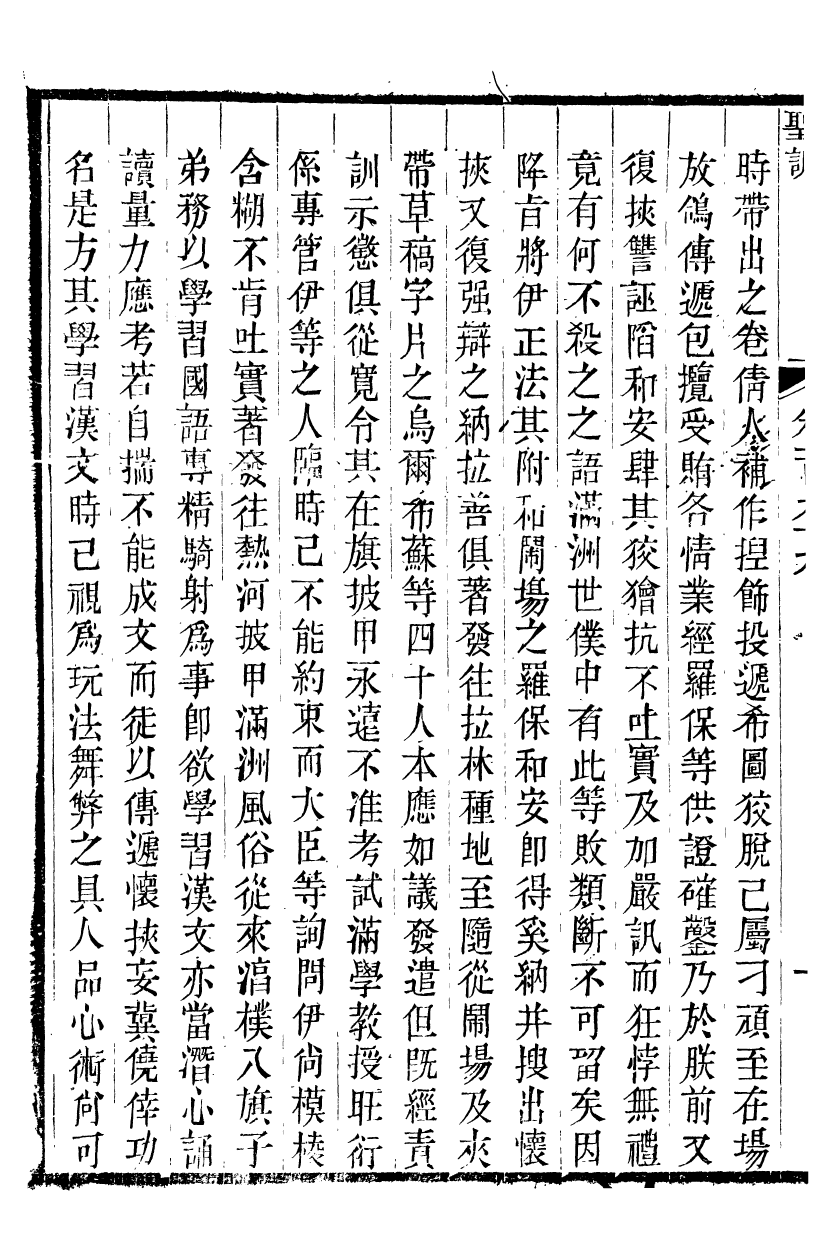 聖訓
時帶出之卷倩人補作揑飾投遞希圖狡脫已屬刁頑至在場
放鴿傳遞包攬受賄各情業經羅保等供證確鑿乃於朕前又
復挾讐誣陷和安肆其狡獪抗不吐實及加嚴訊而狂悖無禮
竟有何不殺之之語滿洲世僕中有此等敗類斷不可留矣因
降旨將伊正法其附和鬧場之羅保和安卽得奚納并搜出懷
挾又復强辯之納拉善俱著發往拉林種地至隨從鬧場及夾
帶草稿字片之烏爾希蘇等四十人本應如議發遣但旣經責
訓示懲俱從寬令其在旗披甲永遠不准考試滿學教授旺衍
係專管伊等之人臨時已不能約束而大臣等詢問伊尙模棱
含糊不肯吐實著發往熱河披甲滿洲風俗從來湻樸八旗子
弟務以學習國語專精騎射爲事卽欲學習漢文亦當潛心誦
讀量力應考若自揣不能成文而徒以傳遞懷挾妄冀僥倖功
名是方其學習漢文時已視爲玩法舞弊之具人品心術尙可